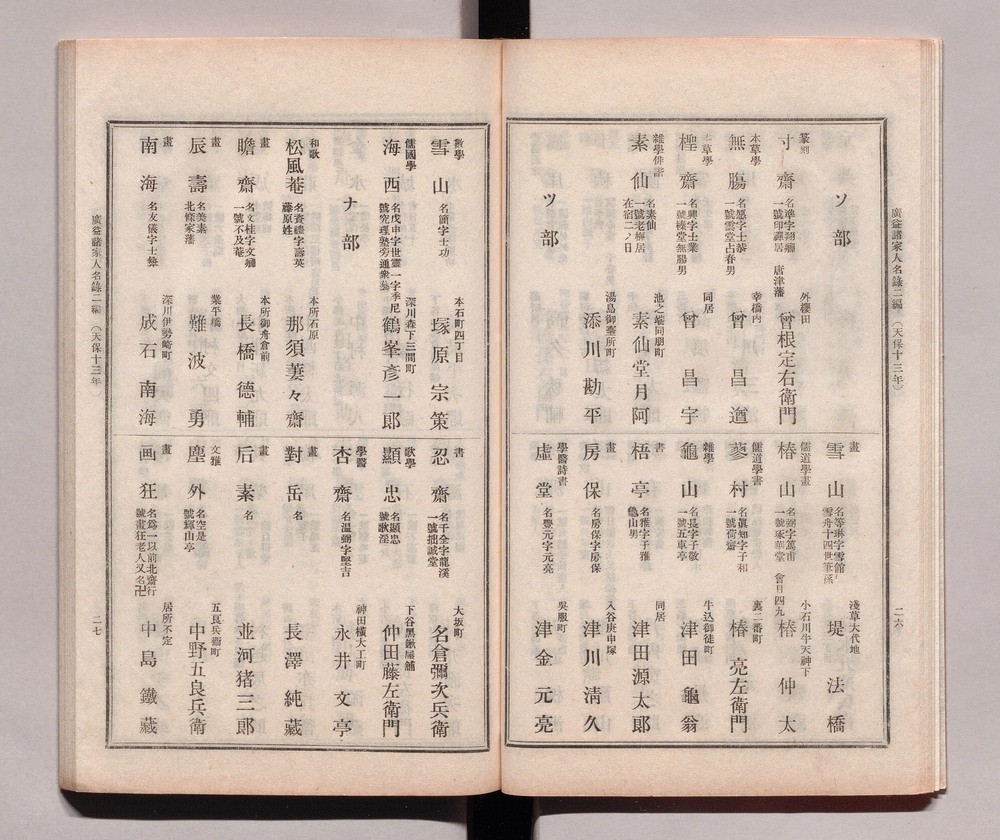 廣益諸家人名錄二編（天保十三年）
二六
ソ部
篆刻
寸齋
一號印譚居
唐津藩
外櫻田
曾根定右衛門
本草學
無膓
名愿字士恭
一號雲堂占春男
幸橋内
曾昌遒
本草學
檉齋
名興字士業
一號榛堂無膓男
同居
曾昌宇
雜學俳諧
素仙
名素仙
一號老樨居
在宿二ノ日
池之端同朋町
素仙堂月阿
湯島御臺所町
添川勘平
ツ部
畫
雪山
名等琳字雪館
雪舟十四世筆孫
淺草大代地
堤法橋
儒道學畫
椿山
名弼字篤甫
一號琢華堂
會日四九
小石川牛天神下
椿仲太
儒道學書
蓼村
名眞知字子和
一號荷齋
裏二番町
椿亮左衛門
雜學
龜山
名長字子敬
一號五車亭
牛込御徒町
津田龜翁
書
梧亭
名雅字子雅
龜山男
同居
津田源太郎
畫
房保
名房保字房保
入谷庚申塚
津川淸久
學醫詩書
虛堂
名豐元字元亮
吳服町
津金元亮
數學
雪山
名簡字士功
本石町四丁目
塚原宗策
儒國學
海西
名戊申字世靈一字季尼
號究理塾旁通衆藝
深川森下三間町
鶴峯彥一郎
ナ部
和歌
松風菴
名資禮字壽英
藤原姓
本所石原
那須萋々齋
畫
瞻齋
名文桂字文瑚
一號不及菴
本所御舟倉前
長橋德輔
畫
辰壽
名美素
北條家藩
業平橋
難波勇
畫
南海
名友儀字士彜
深川伊勢崎町
成石南海
書
忍齋
名千金字龍溪
一號拙誠堂
大坂町
名倉彌次兵衛
歌學
顯忠
名顯忠
號歌瀅
下谷黑鍬屋舖
仲田藤左衛門
學醫
杏齋
名溫弼字堅吉
神田橫大工町
永井文亭
畫
對岳
名
長澤純藏
畫
后素
名
並河猪三郎
文雅
塵外
名空是
號輝山亭
五良兵衞町
中野五良兵衛
畫
画狂
名爲一以前北齋行
號畫狂老人又名卍
居所不定
中島鐵藏
廣益諸家人名錄二編（天保十三年）
二七